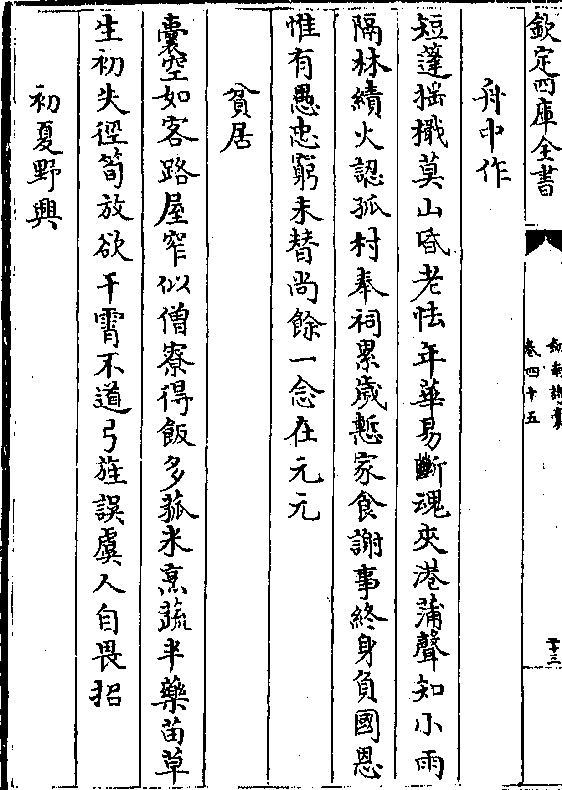 欽定四庫全書
劍南詩藁
卷四十五
二十三
舟中作
短篷揺檝莫山昏老怯年華易斷魂夾港蒲聲知小雨
隔林績火認孤村奉祠累歲慙家食謝事終身負國恩
惟有愚忠窮未替尚餘一念在元元
貧居
囊空如客路屋窄似僧寮得飯多菰米烹蔬半藥苗草
生初失徑筍放欲干霄不道弓旌誤虞人自畏招
初夏野興